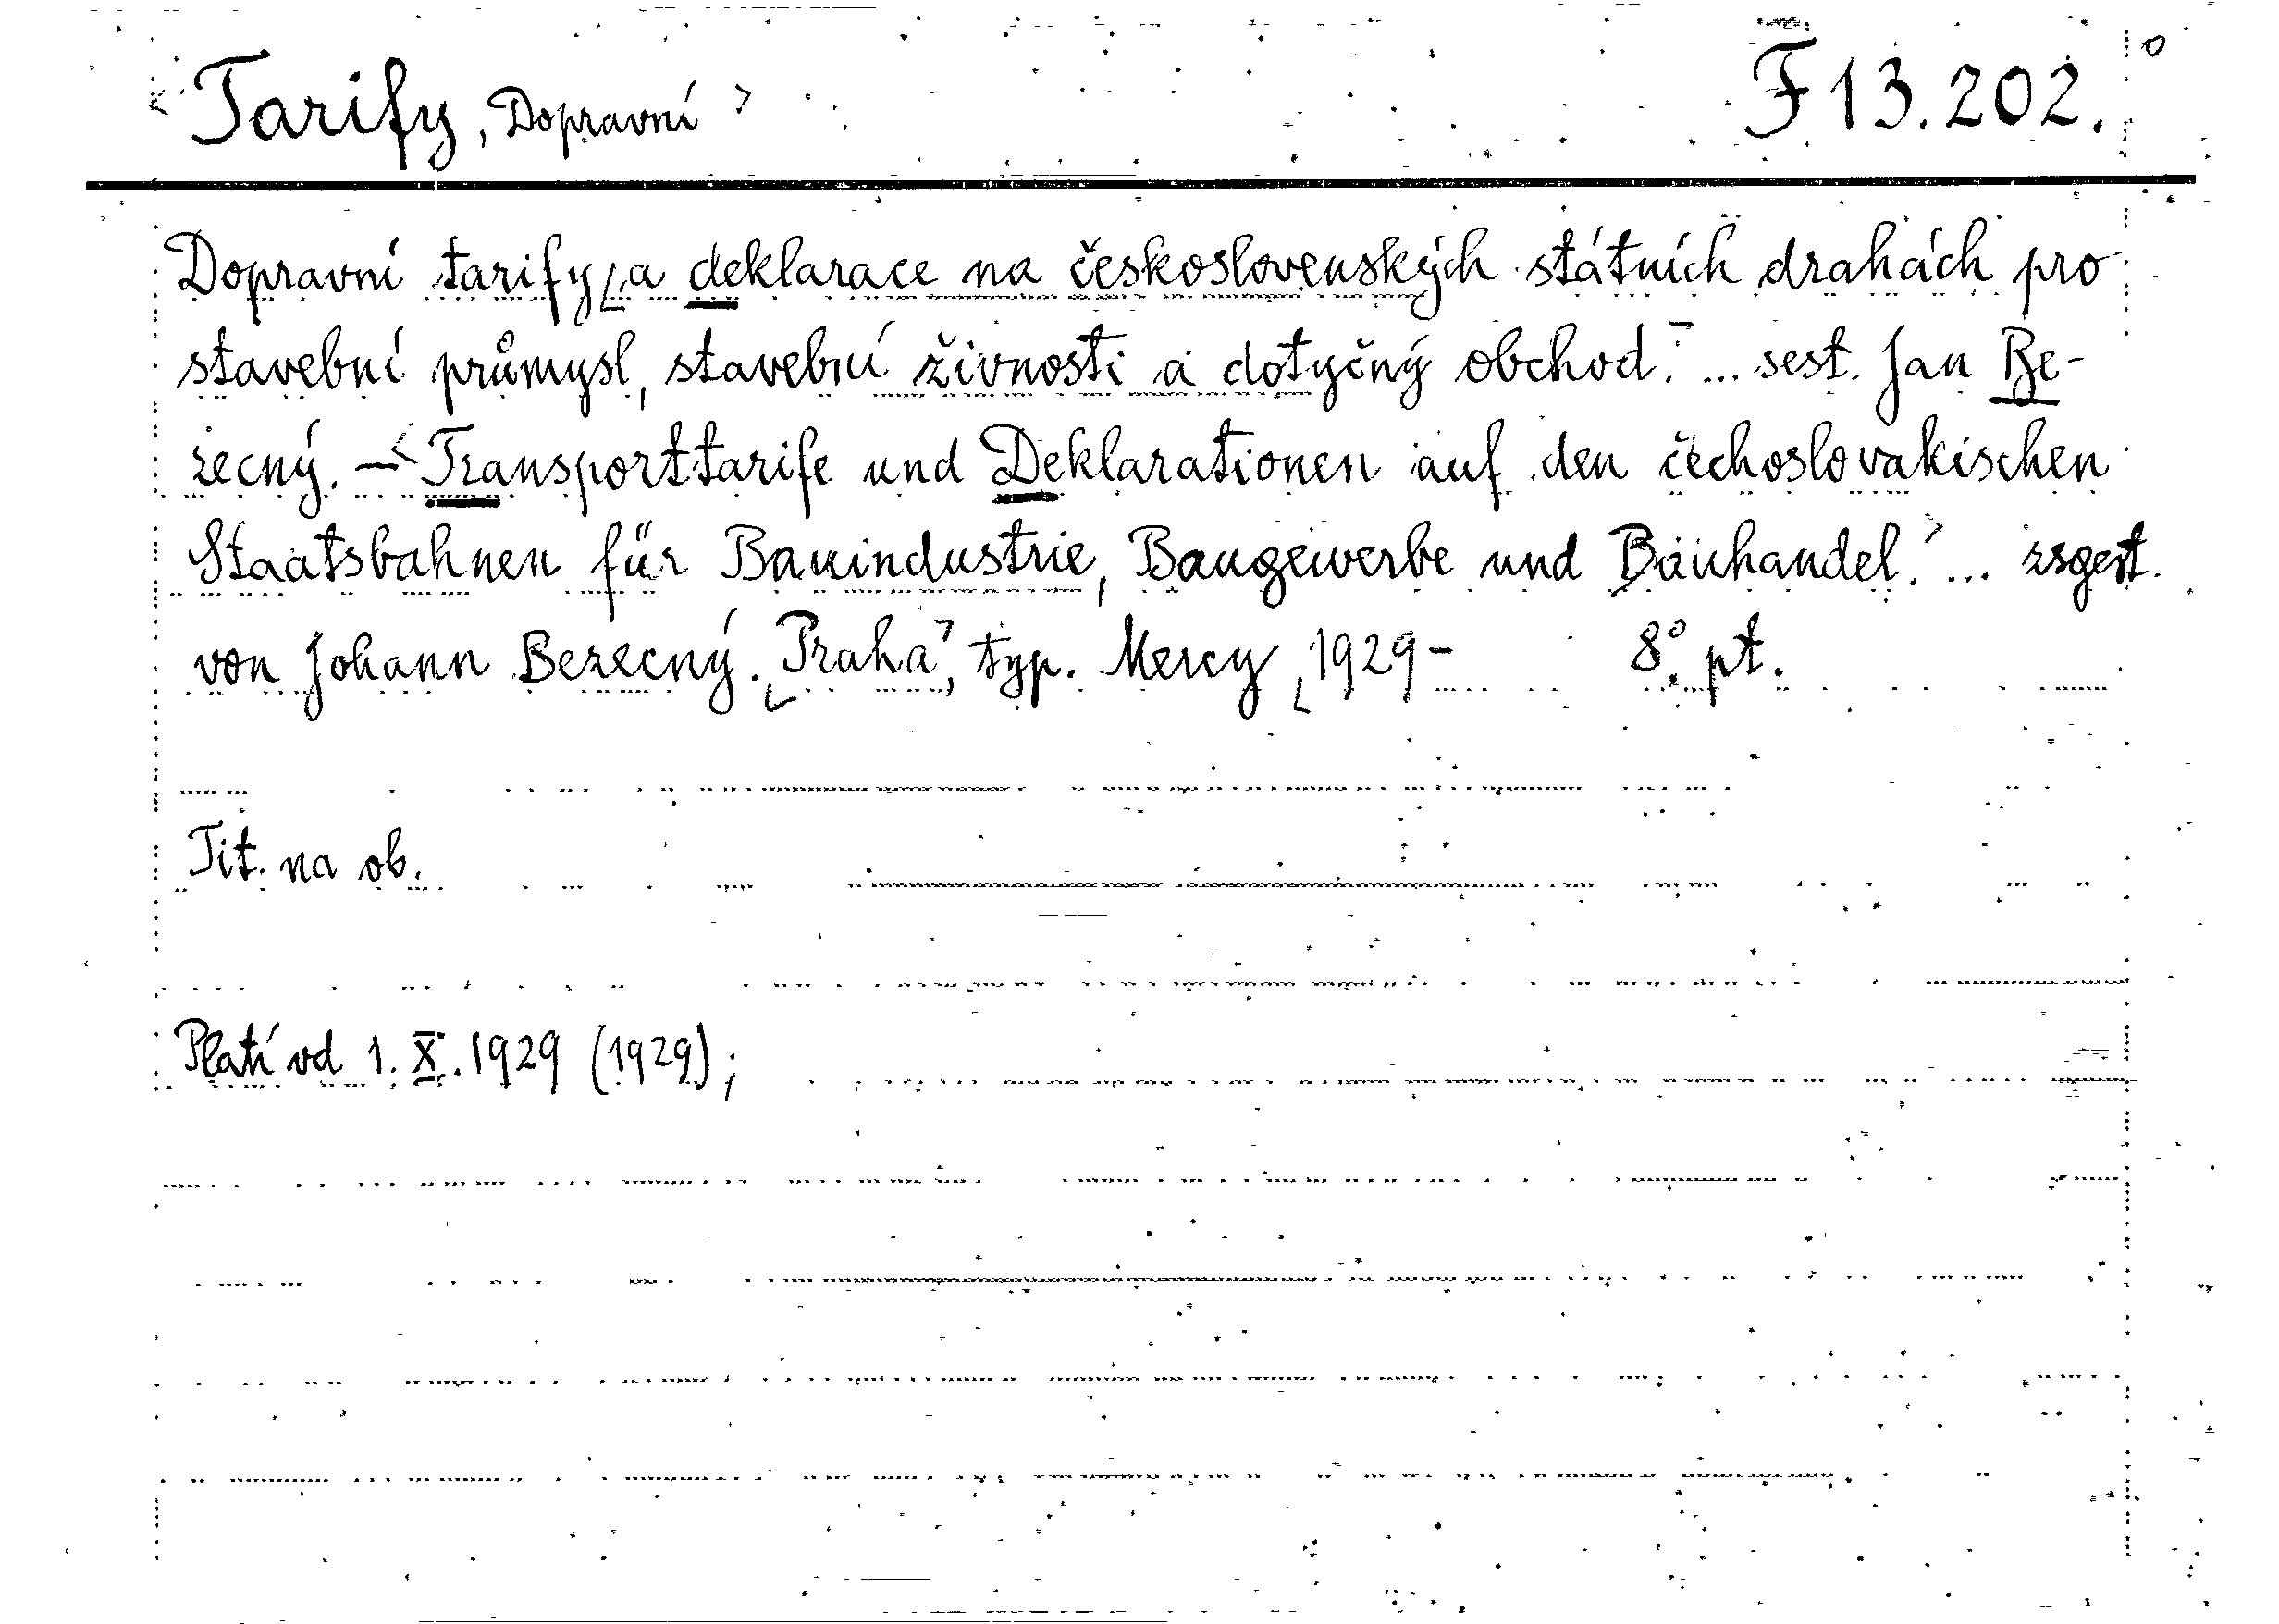 < Tarify, Dopravní > F 13.202.°
Dopravní tarify a deklarace na československých státních drahách pro
stavební průmysl, stavební živnosti a dotyčný obchod. ... sest. Jan Be-
zecný. — < Transporttarife und Deklarationen auf den čechoslovakischen
Staatsbahnen für Bauindustrie, Baugewerbe und Bauhandel. > ... zsgest.
von Johann Bezecný. Praha, typ. Mercy, 1929- 8°. pt.
Tit. na ob.
Platí od 1. X. 1929 (1929);